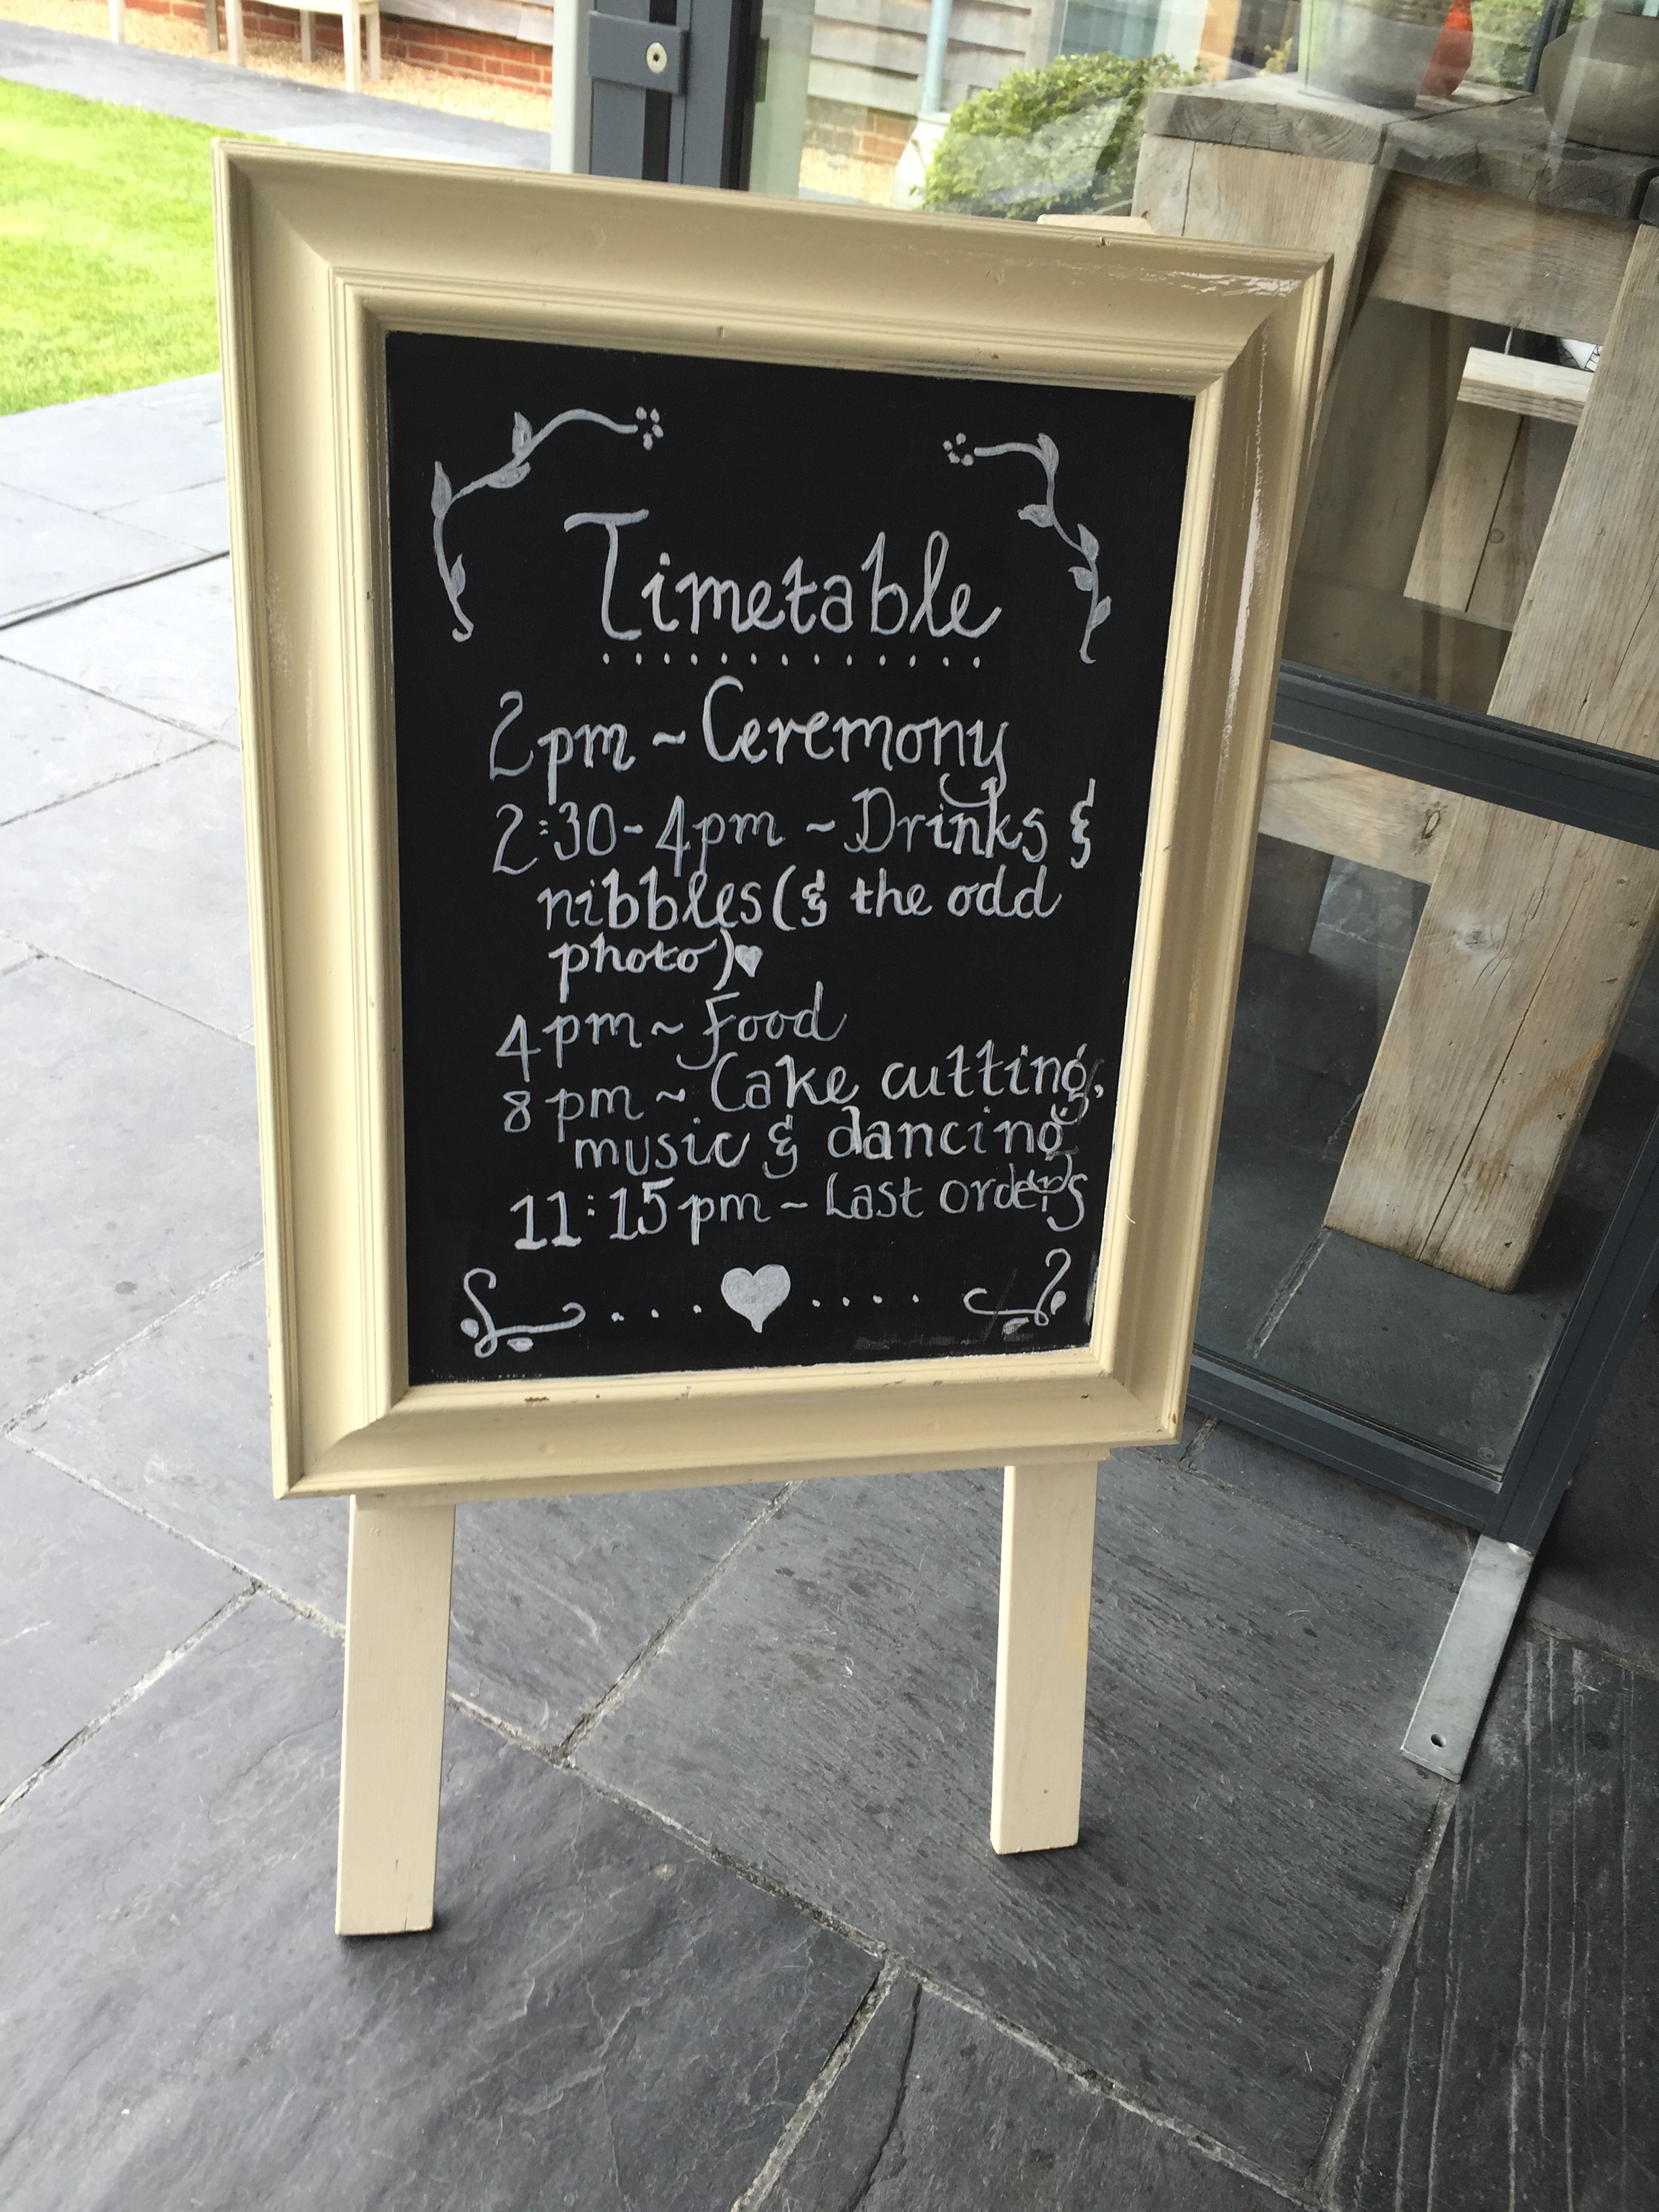 Timetable
2pm ~ Ceremony
2:30-4pm ~ Drinks &
nibbles (& the odd
photo)♥
4pm ~ Food
8pm ~ Cake cutting,
music & dancing
11:15pm ~ Last orders